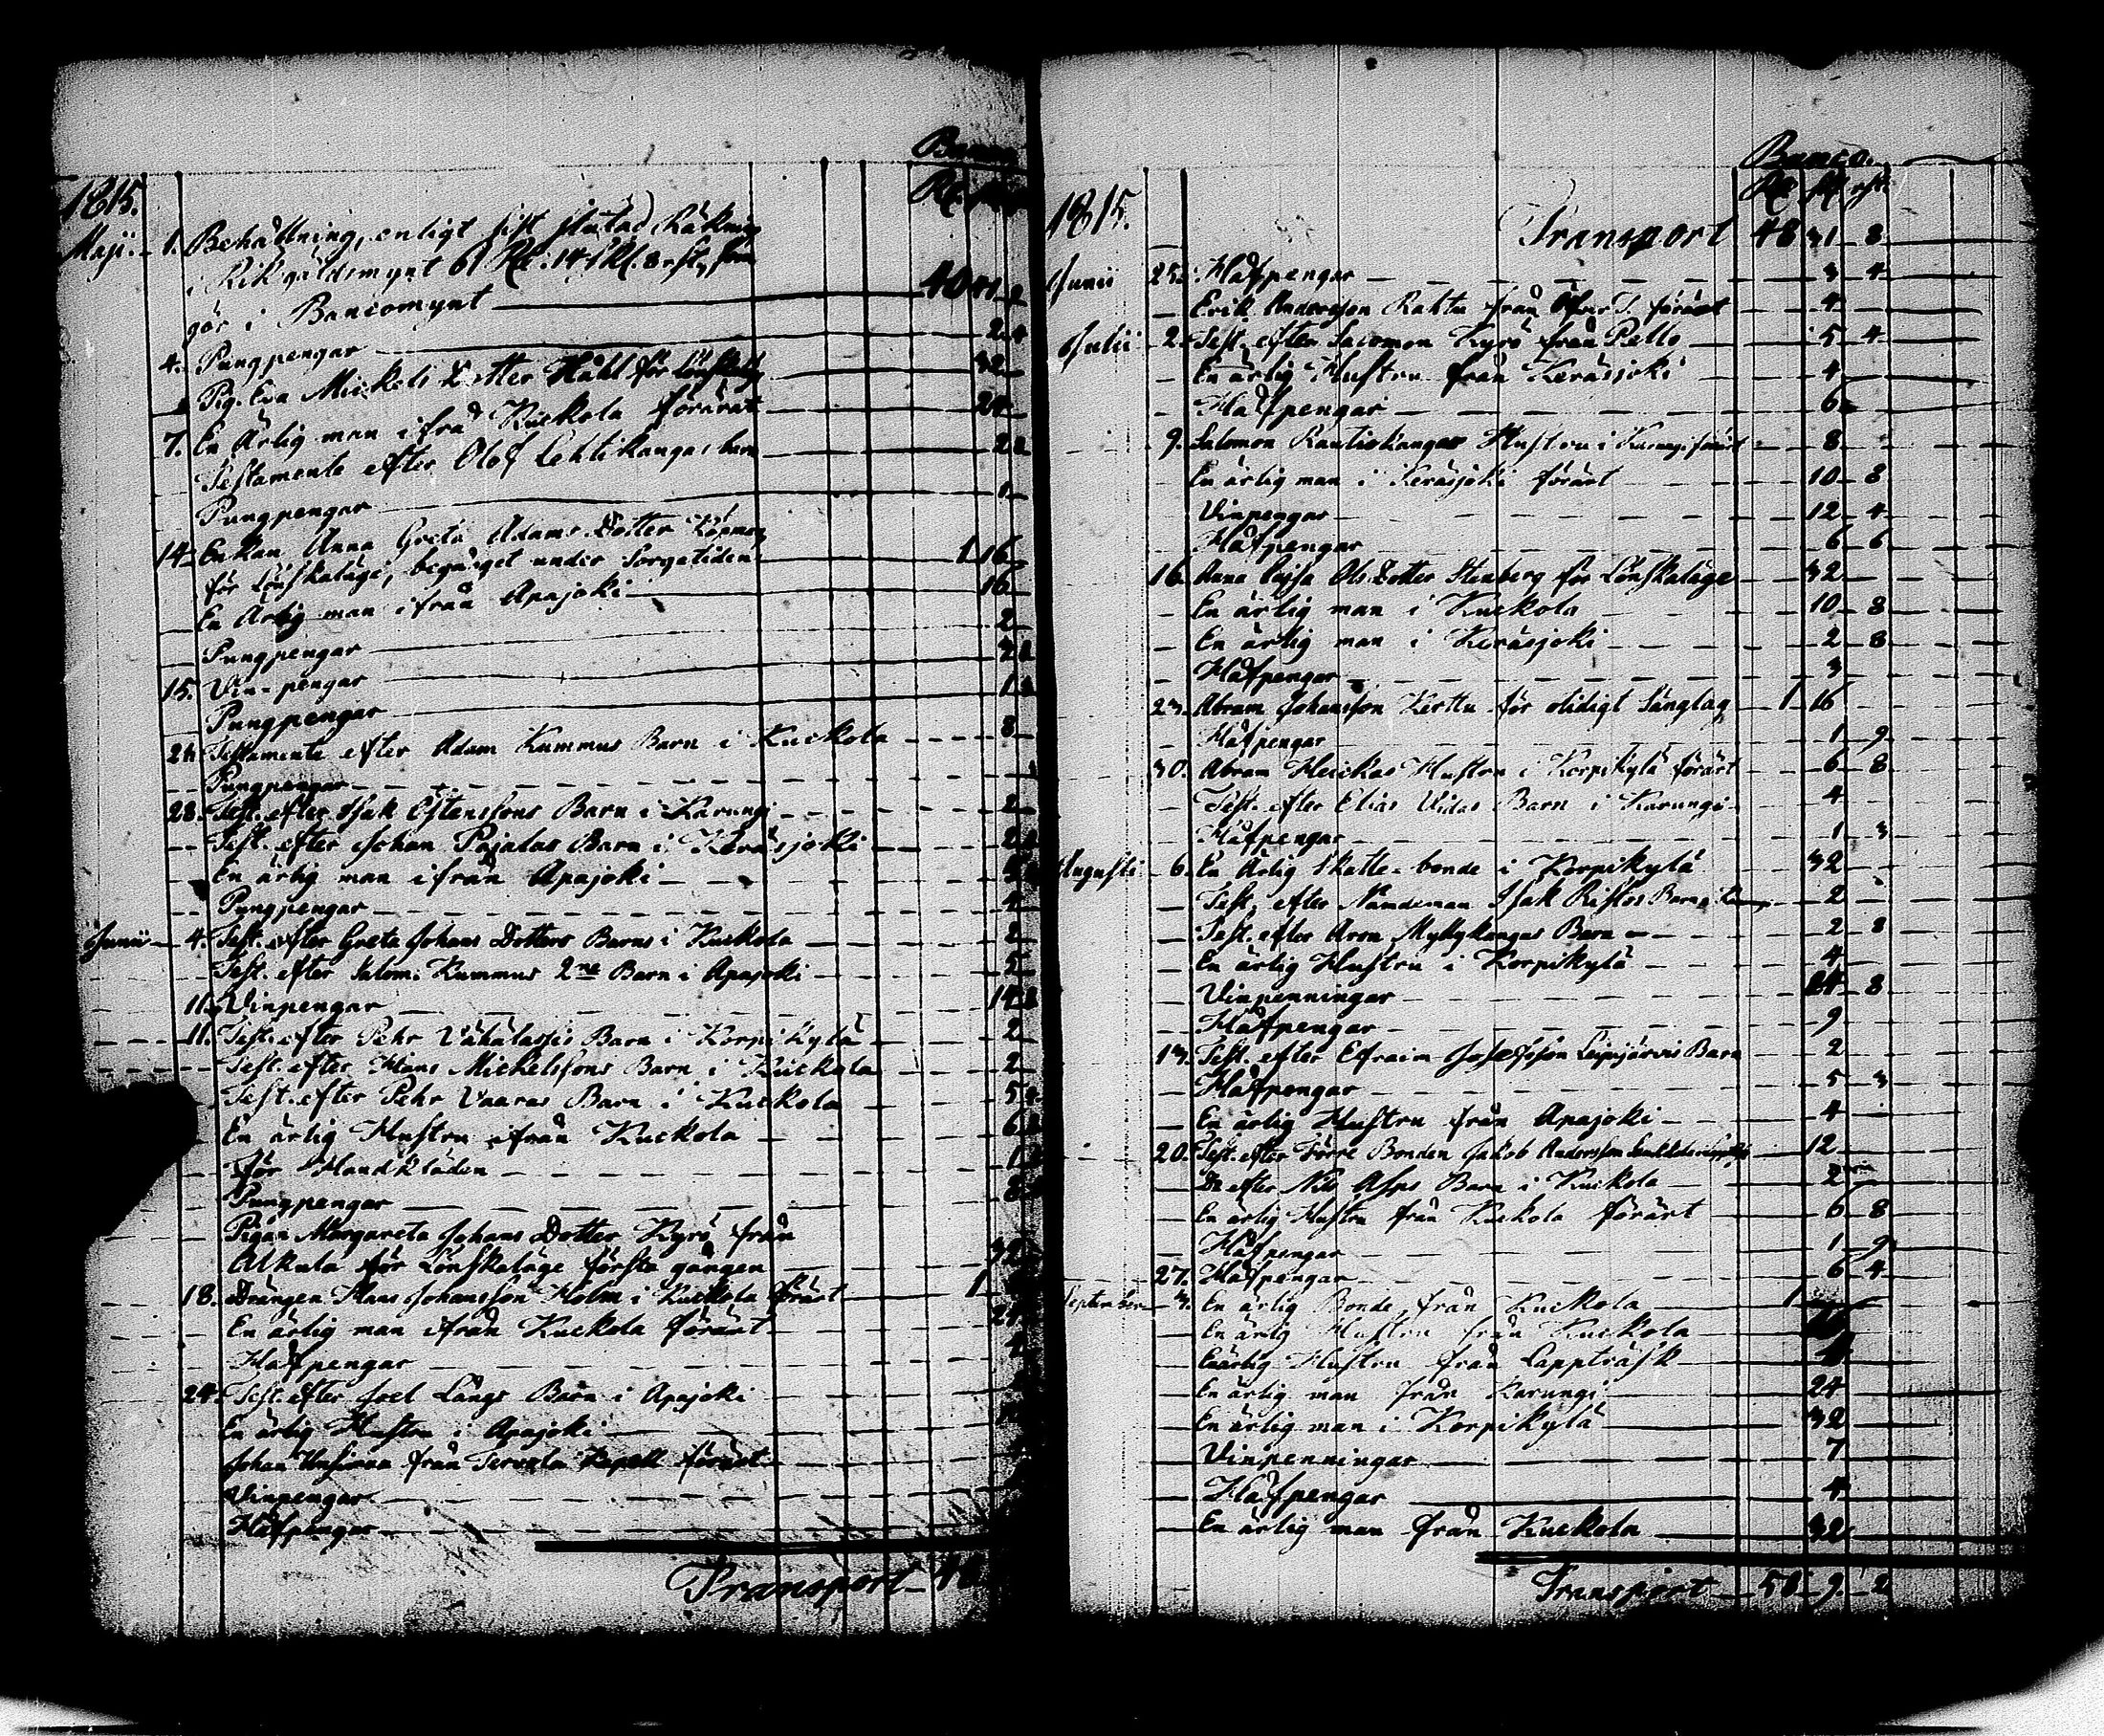 Banco
1815. Rd. sk.
Maji. 1. Behållning, enligt sist slutad Räkning
i Riksgäldsmynt 61 Rd. 14 skl. 8 rst., som
gör i Bancomynt 40
4. Pungpengar 2 4
Pig. Eva Mickels Dotter för Lönskaläge 32
7. En Ärlig man ifrån Kuckola förärat 24
Testamente efter Olof Lehtikangas barn 2
Pungpengar 1
14. Enkan Anna Greta Adams Dotter
för Lönskaläge, begånget under Sorgetiden 1 16
En Ärlig man ifrån Apajoki 16
Pungpengar 2
15. Vin-pengar
Pungpengar 1
Testamente efter Adam Kummus Barn i Kuckola 8
Pungpengar
28. Test. efter Isak Östenssons Barn i Karungi 2
Test. efter Johan Pajalas Barn i Keräsjoki 2
En ärlig man ifrån Apajoki
Pungpengar
Junii 4. Test. efter Greta Johans Dotters Barns i Kuckola 2
Test. efter Salom. Kummus 2ne Barn i Apajoki 5
11. Vinpengar 14
11. Test. efter Pehr Barn i Korpikylä 2
Test. efter Hans Michelssons Barn i Kuckola 2
Test. efter Pehr Vaaras Barn i Kuckola 5
En ärlig Hustru ifrån Kuckola 6
för Handkläden 1
Pungpengar 8
Pigan Margareta Johans Dotter Kyrö från
Alkula för Lönskaläge första gången 32
18. Drängen Hans Johansson Holm i Kuckola förärt 1
En ärlig man ifrån Kuckola förärt
Håfpengar
24. Test. efter Joel Längs Barn i Apajoki
En ärlig Hustru i Apajoki
Johan från Tervola Kapell förärt
Vinpengar
Håfpengar
Transport 48
Banco.
1815. Rd sk rst.
Transport 48 31 8
Junii 25. Håfpengar 3 4
Erik Andersson Rahtu från Öfver T. förärt 4
Julii 2. Test. efter Salomon Kyrö från Pello 5 4
En ärlig Hustru från Keräsjoki 4
Håfpengar 6
9. Salomon Rautiokangas Hustru i Karungi förärt 8
En ärlig man i Keräsjoki förärt 10 8
Vinpengar 12 4
Håfpengar 6 6
16. Anna Cajsa Ols Dotter Stenberg för Lönskaläge 32
En ärlig man i Kuckola 10 8
En ärlig man i Keräsjoki 2 8
Håfpengar 3
23. Abram Johansson Kerttu för otidigt Sänglag 1 16
Håfpengar 1 9
30. Abram Heickas Hustru i Korpikylä förärt 6 8
Test. efter Elias Vidas Barn i Karungi 4
Håfpengar 1 3
Augusti 6. En Ärlig Skatte-bonde i Korpikylä 32
Test. efter Nämdeman Isak Ristos Barn 2
Test. efter Aron Myllykangas Barn 2 8
En ärlig Hustru i Korpikylä 4
Vinpenningar 24 8
Håfpengar 9
13. Test. efter Efraim Josefsson Leipijärvis Barn 2
Håfpengar 5 3
En ärlig Hustru från Apajoki 4
20. Test. efter Förre Bonden Jakob Andersson 12
Do efter Nils Asps Barn i Kuckola 2
En ärlig Hustru från Kuckola förärt 6 8
Håfpengar 1 9
27. Håfpengar 6 4
September 3. En ärlig Bonde från Kuckola 1
En ärlig Hustru från Kuckola
En ärlig Hustru från Lappträsk
En ärlig man från Karungi 24
En ärlig man i Korpikylä 32
Vinpenningar 7
Håfpengar 4
En ärlig man från Kuckola 32
Transport 58 9 2